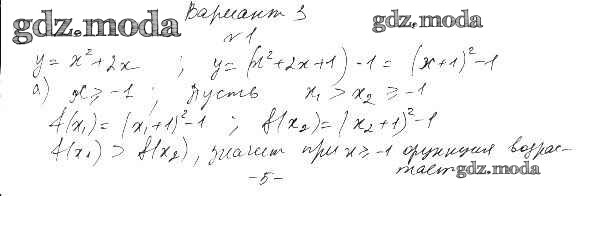 gdz.moda Вариант 3 gdz.moda
№1
y = x² + 2x ; y = (x² + 2x + 1) - 1 = (x+1)² - 1
а) x ⩾ -1 ; пусть x₁ > x₂ ⩾ -1
f(x₁) = (x₁+1)² - 1 ; f(x₂) = (x₂+1)² - 1
f(x₁) > f(x₂), значит при x ⩾ -1 функция возрас-
тает gdz.moda
-5-